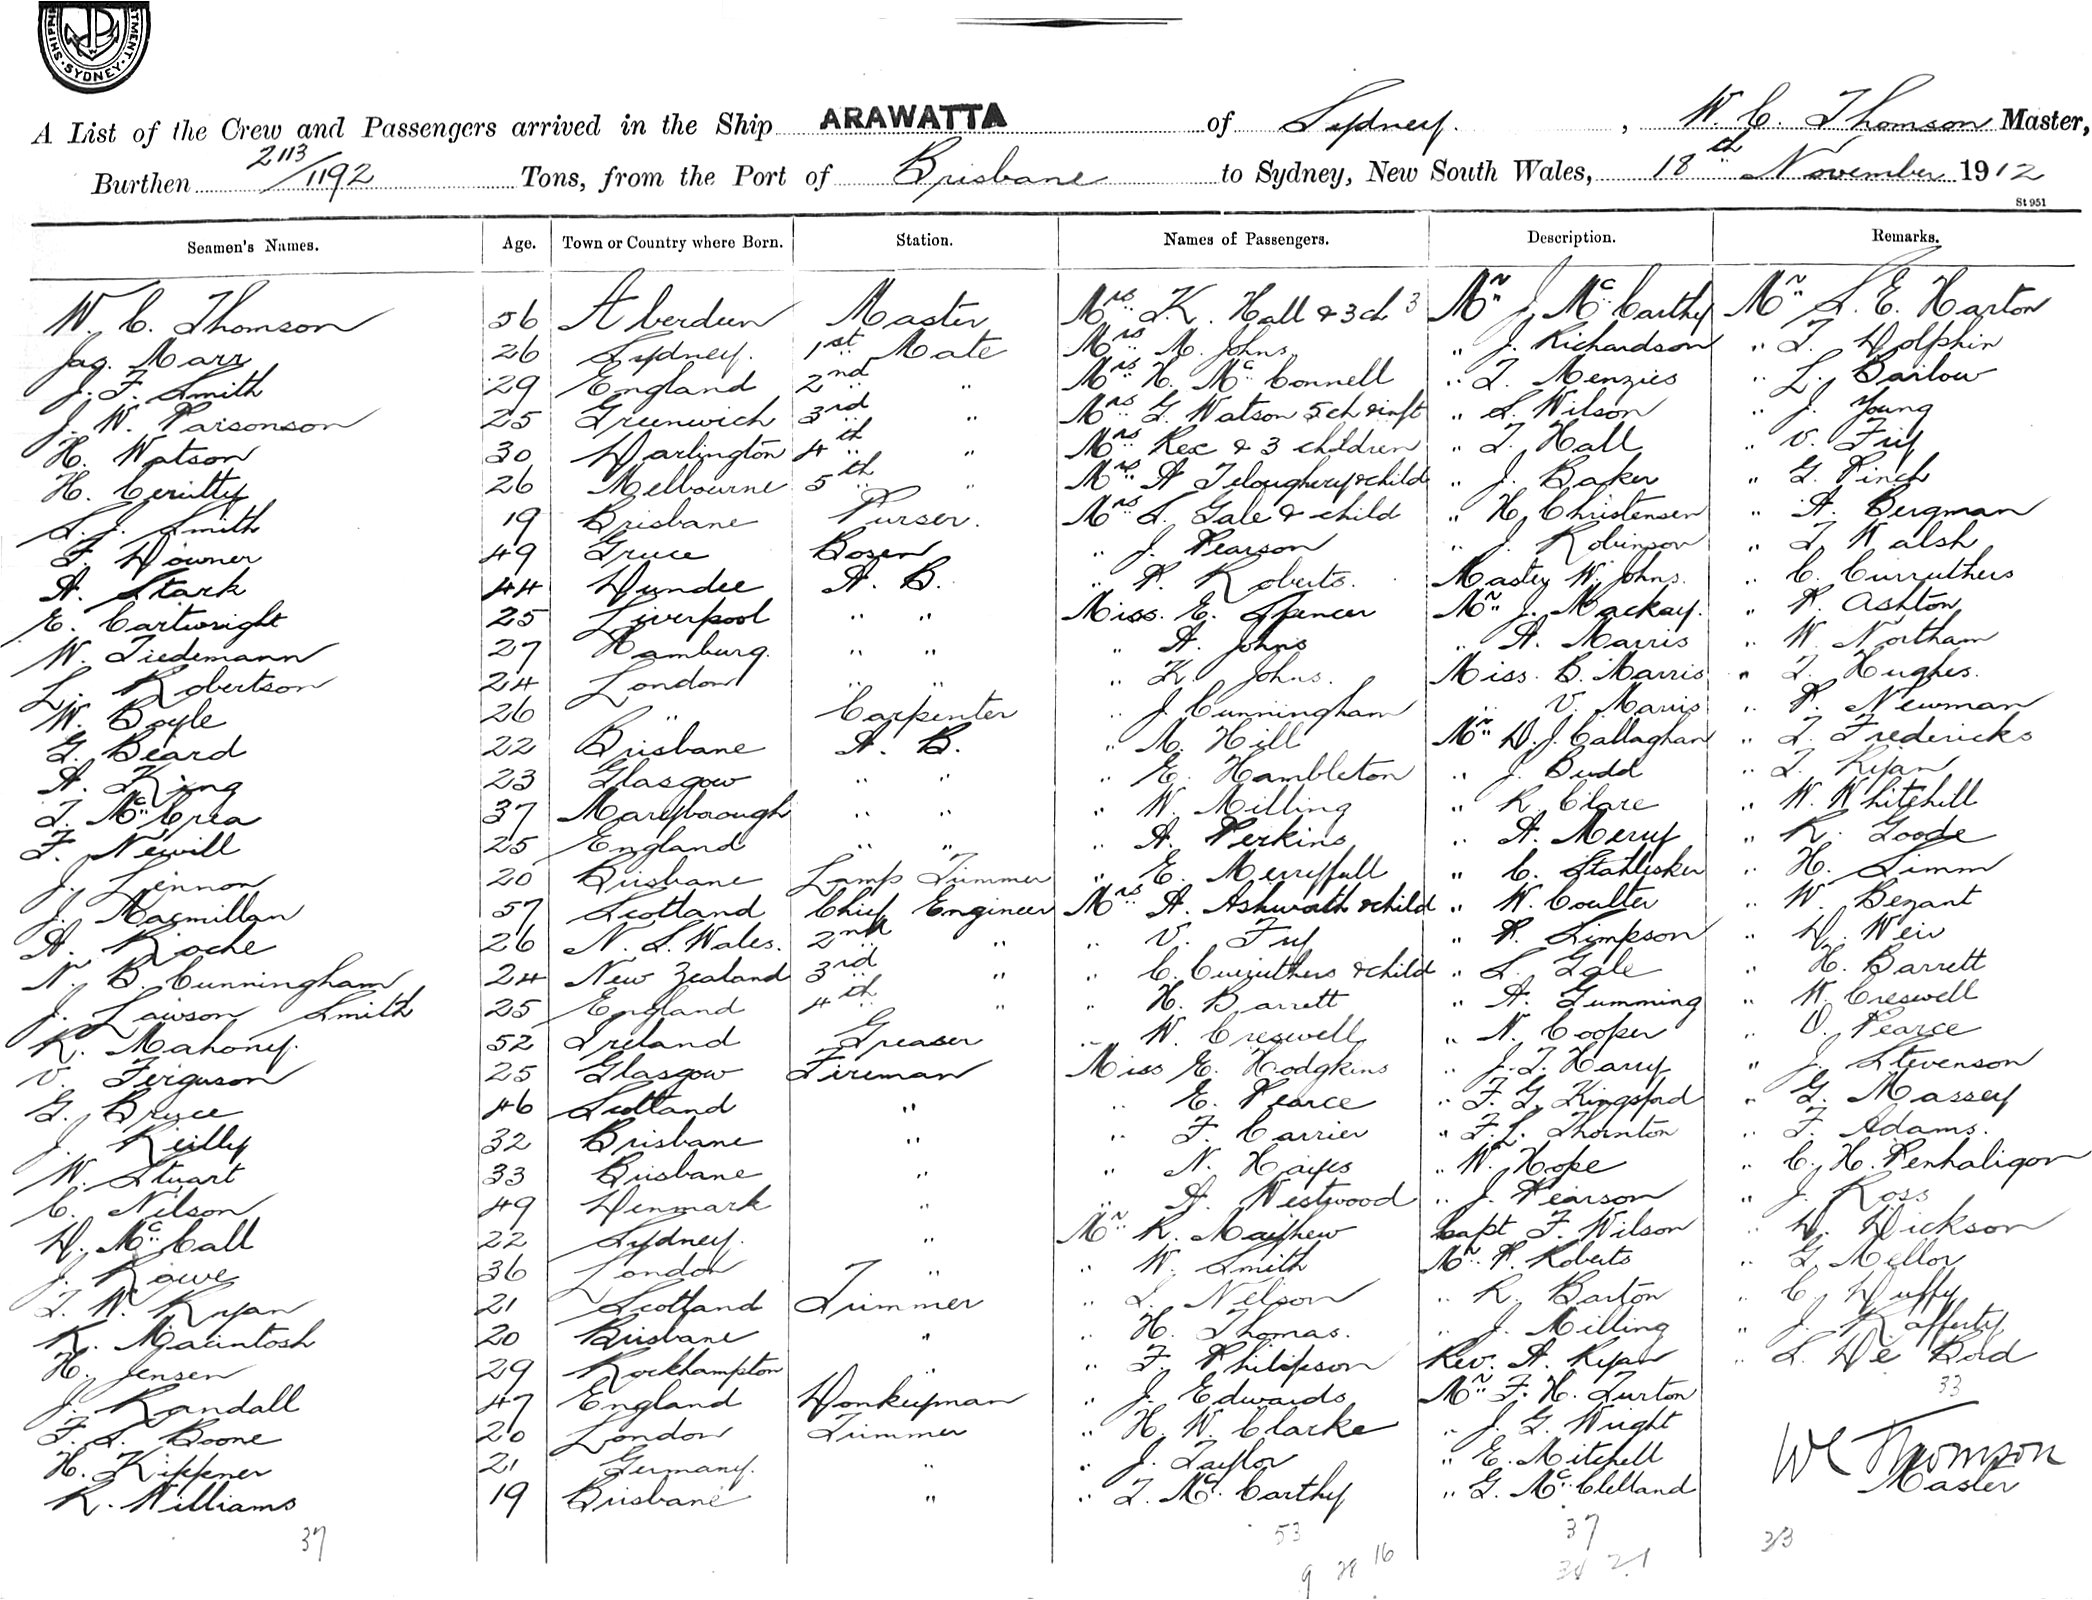 SHIPPING
SYDNEY
A List of the Crew and Passengers arrived in the Ship ARAWATTA of Sydney. , W. C. Thomson Master,
Burthen 2113/1192 Tons, from the Port of Brisbane to Sydney, New South Wales, 18th November 1912
St 951
Seamen's Names. Age. Town or Country where Born. Station. Names of Passengers. Description. Remarks.
W. C. Thomson 56 Aberdeen Master Mrs K. Hall & 3 ch 3 Mr J. McCarthy Mr S. E. Harton
Jas. Marr 26 Sydney. 1st Mate Mrs M. Johns " J. Richardson " T. Dolphin
J. F. Smith 29 England 2nd " Mrs H. McConnell " T. Menzies " L. Barlow
J. W. Parsonson 25 Greenwich 3rd " Mrs G. Watson 5 ch & inft " S. Wilson " J. Young
H. Watson 30 Darlington 4th " Mrs Rex & 3 children " T. Hall " V. Fry
H. Cerutty 26 Melbourne 5th " Mrs A Teloughery & child " J. Baker " G. Pinch
S. J. Smith 19 Brisbane Purser. Mrs S. Gale & child " H. Christensen " A. Bergman
F. Downer 49 Greece Bosen " J. Pearson " J. Robinson " T Walsh
A. Stark 44 Dundee A. B. " P. Roberts. Master W. Johns. " C. Curruthers
E. Cartwright 25 Liverpool " " Miss. E. Spencer Mr J. Mackay. " P. Ashton
W. Tiedemann 27 Hamburg. " " " A. Johns " A. Marris " W. Northam
L. Robertson 24 London " " " K Johns. Miss. B. Marris " T. Hughes.
W. Boyle 26 " Carpenter " J Cunningham " V. Marris " P. Newman
G. Beard 22 Brisbane A. B. " M. Hill Mr D. J. Callaghan " T. Fredericks
A. King 23 Glasgow " " " E. Hambleton " J. Budd " T. Ryan
T. McCrea 37 Maryborough " " " W. Milling " R. Clare " W. Whitehill
F. Newill 25 England " " " A. Perkins " A. Merry " R. Goode
J. Lennon 20 Brisbane Lamp Trimmer " E. Merryfull " C. Stahlisker " H. Simm
J. Macmillan 57 Scotland Chief Engineer Mrs A. Ashworth & child " W. Coulter " W. Bezant
A. Roche 26 N. S. Wales. 2nd " " V. Fry " P. Simpson " D. Weir
N. B. Cunningham 24 New Zealand 3rd " " C. Curruthers & child " S. Gale " H. Barrett
J. Lawson Smith 25 England 4th " " H. Barrett " A. Gumming " W. Creswell
R. Mahony. 52 Ireland Greaser " W. Creswell " N. Cooper " V. Pearce
V. Ferguson 25 Glasgow Fireman Miss E. Hodgkins " J. T. Harry " J. Stevenson
G. Bruce 46 Scotland " " E. Pearce " F. G. Kingsford " G. Massey
J. Reilly 32 Brisbane " " F. Carrier " F. L. Thornton " F. Adams.
W. Stuart 33 Brisbane " " N. Hayes " W. Hope " C. H. Penhaligon
C. Nilson 49 Denmark " " A. Westwood " J. Pearson " J. Ross
D. McCall 22 Sydney. " Mr R. Mayhew Capt F. Wilson " D. Dickson
J. Rowe 36 London " " W. Smith Mr P. Roberts " G. Mellor
T. W. Ryan 21 Scotland Trimmer " L. Nelson " R. Barton " C. Duffy
R. Macintosh 20 Brisbane " " H. Thomas. " J. Milling " J. Rafferty
H. Jensen 29 Rockhampton " " F. Philipson Rev. A. Ryan " S. De Bord
J. Randall 47 England Donkeyman " J. Edwards Mr F. H. Turton 33
F. S. Boone 20 London Trimmer " H. W. Clarke " J. G. Wright
H. Kippner 21 Germany. " " J. Taylor " E. Mitchell WC Thomson
R. Williams 19 Brisbane " " T. McCarthy " G. McClelland Master
37 53 37 33
9 28 16 34 21